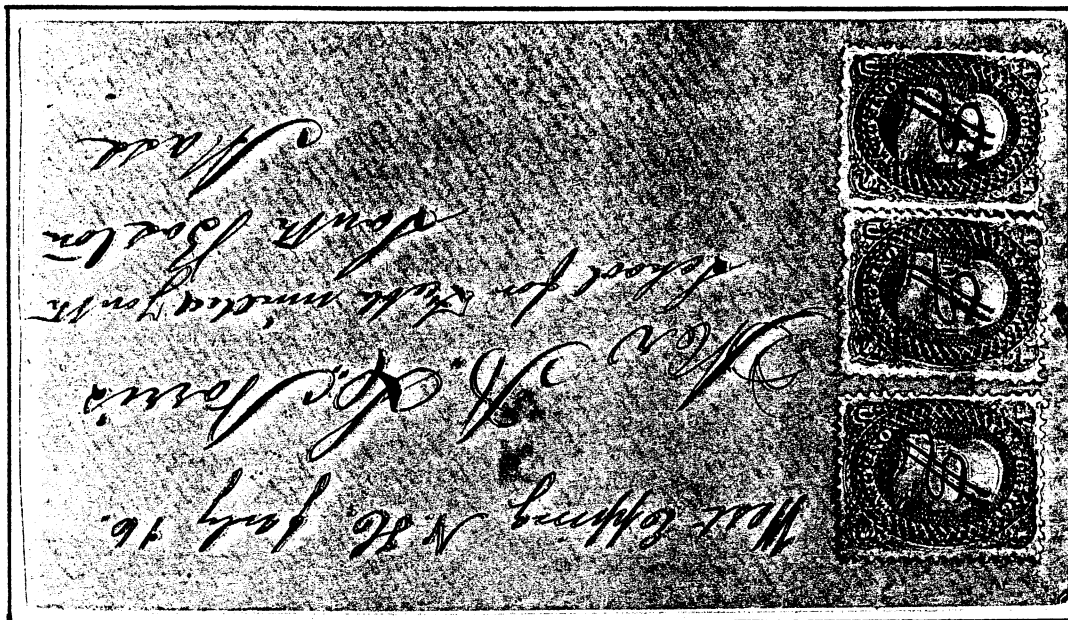 West Epping, N.H. Jan'y 16.
Mrs A. L. Norris
School for Feeble minded Youth
South Boston
Mass